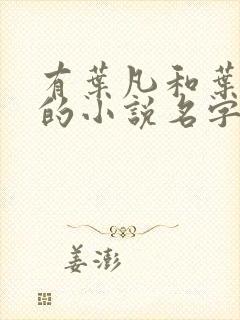 有葉凡和葉
的小說名字
姜澎